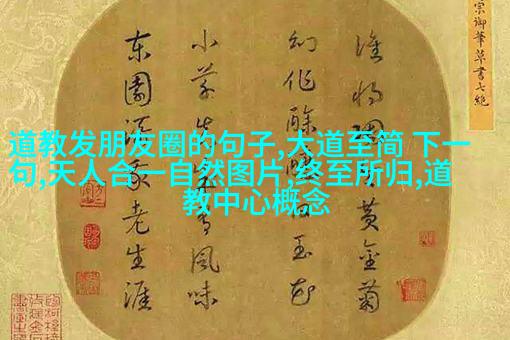 道教发朋友圈的句子,大道至简 下一
句,天人合一自然图片,终至所归,道
教中心概念
宗御筆草書七絶
誰将陶黄金菊
幻作酴玉花
小草風味
东園老生涯